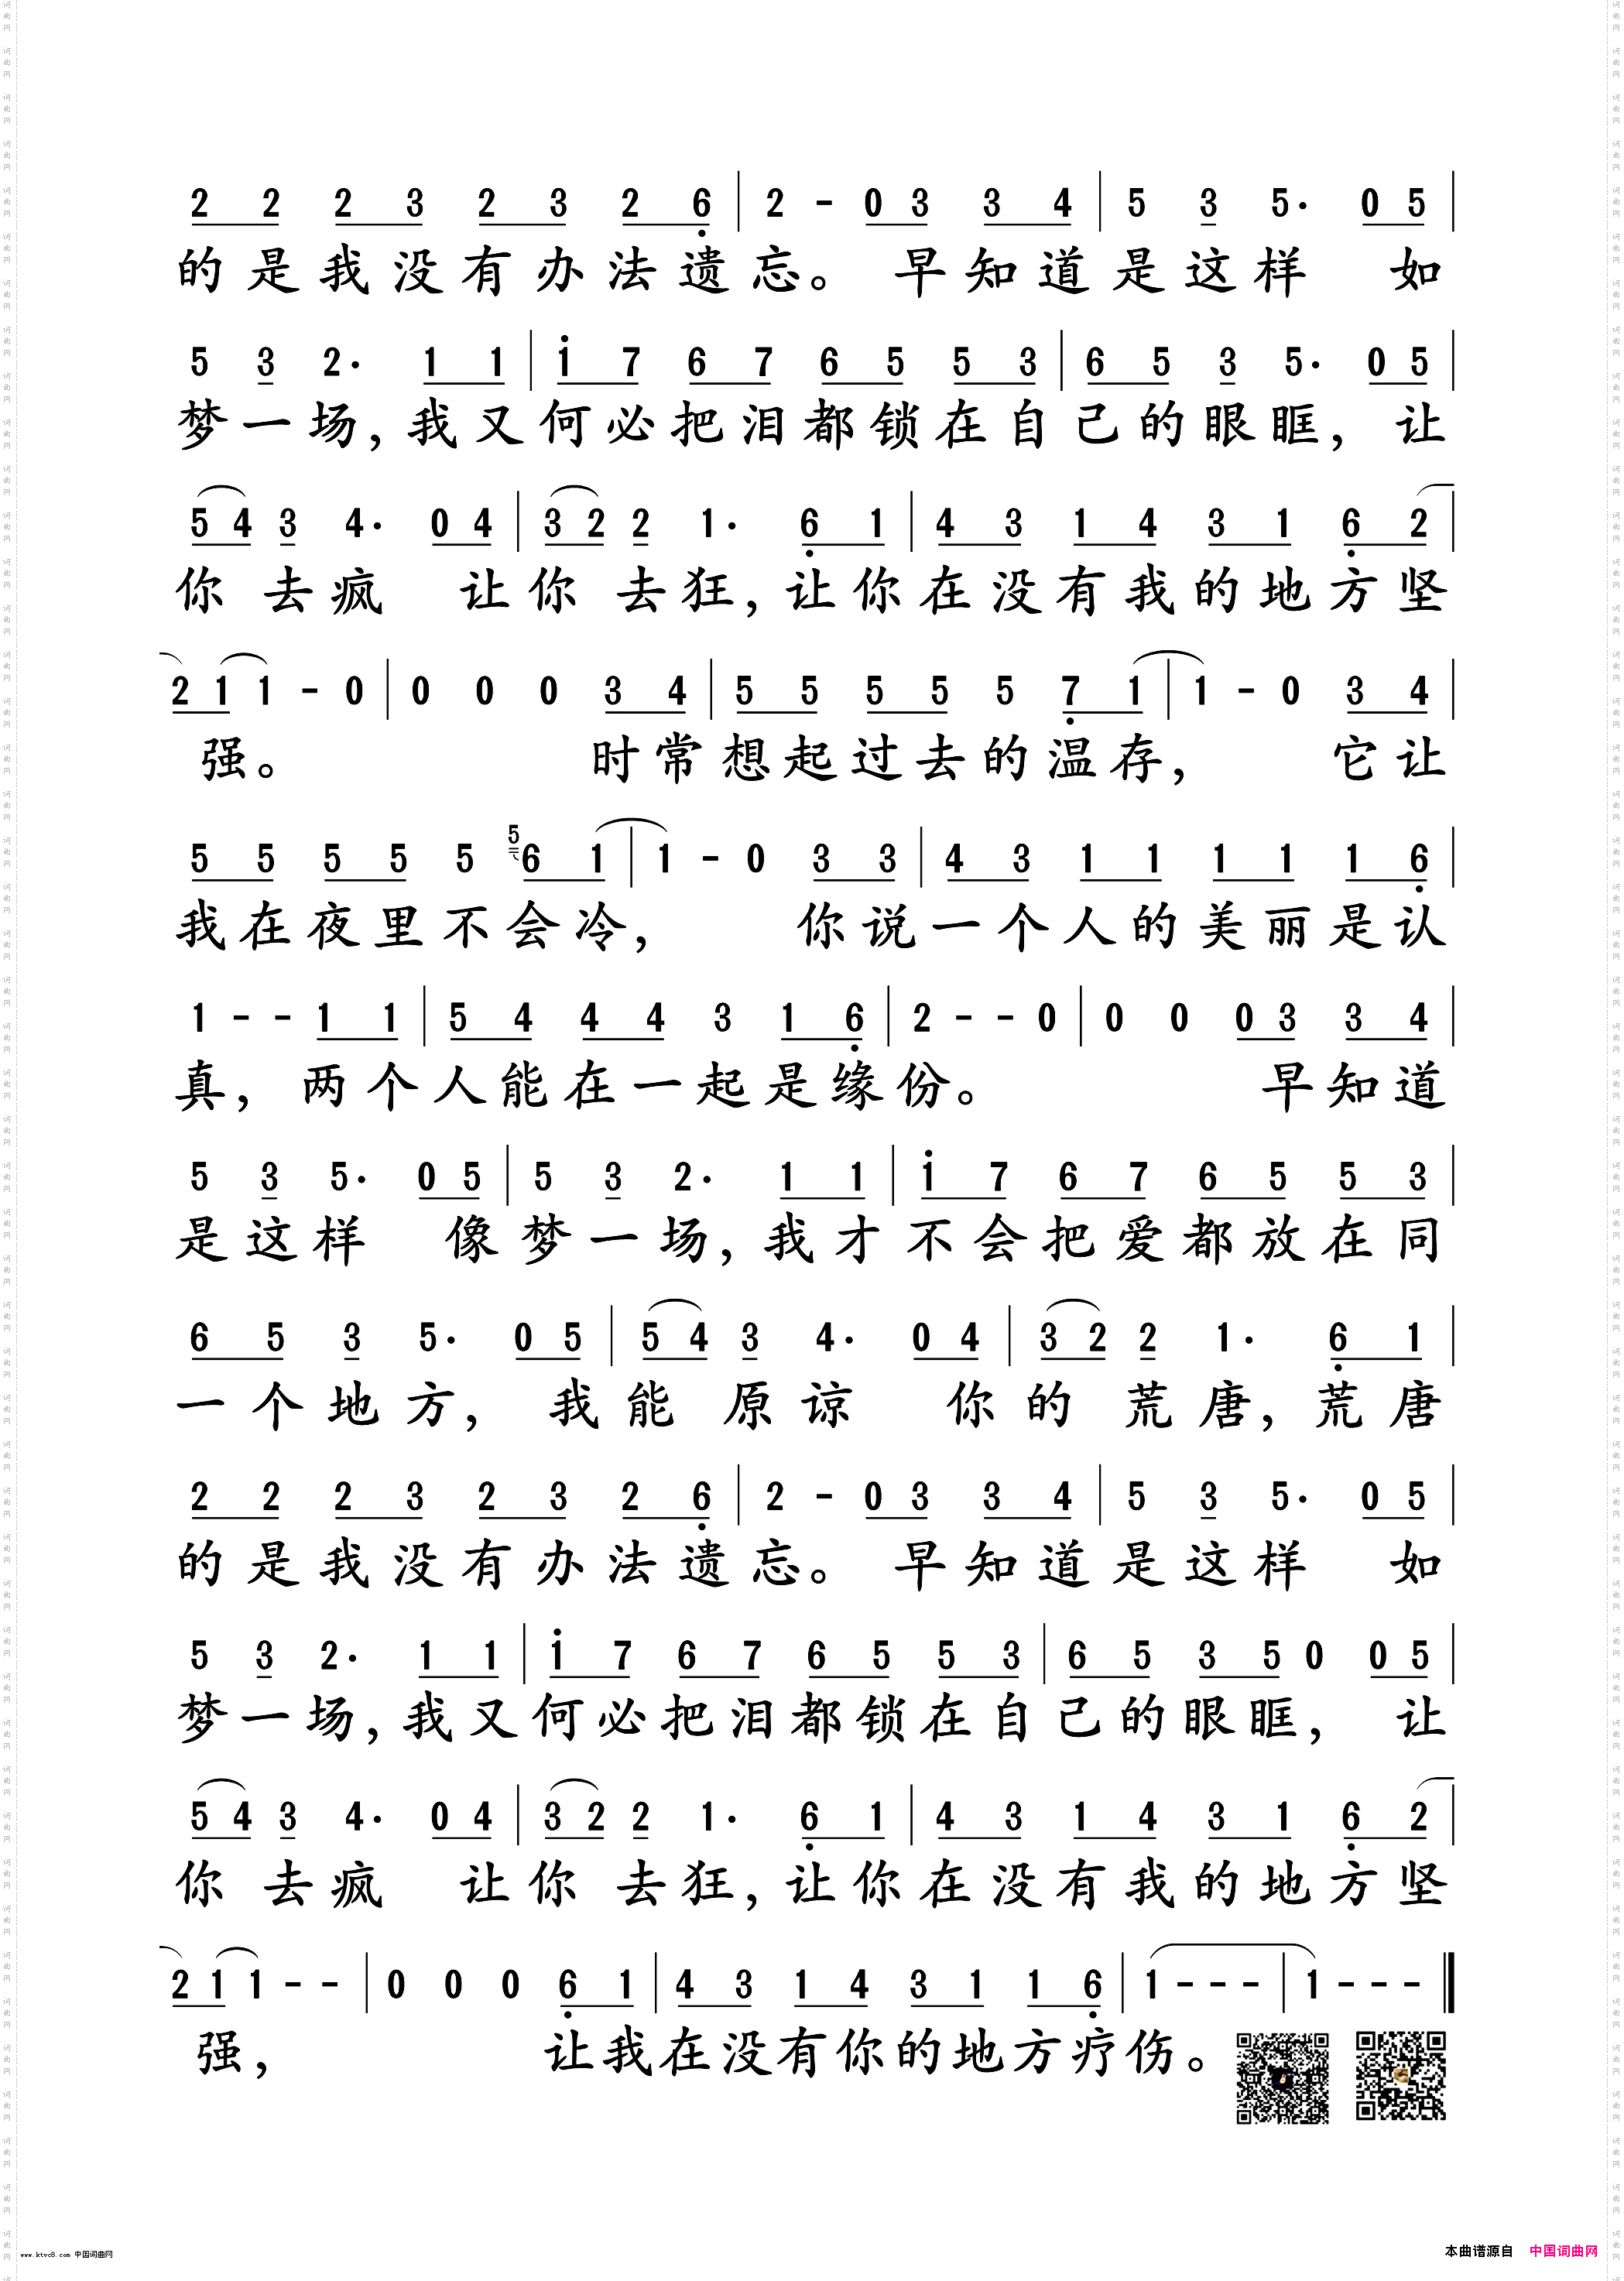 2 2 2 3 2 3 2 6 | 2 - 0 3 3 4 | 5 3 5· 0 5 |
的是我没有办法遗忘。 早知道是这样 如
5 3 2· 1 1 | 1 7 6 7 6 5 5 3 | 6 5 3 5· 0 5 |
梦一场,我又何必把泪都锁在自己的眼眶,让
5 4 3 4· 0 4 | 3 2 2 1· 6 1 | 4 3 1 4 3 1 6 2 |
你去疯 让你去狂,让你在没有我的地方坚
2 1 1 - 0 | 0 0 0 3 4 | 5 5 5 5 5 7 1 | 1 - 0 3 4 |
强。 时常想起过去的温存, 它让
5 5 5 5 5 5 6 1 | 1 - 0 3 3 | 4 3 1 1 1 1 1 6 |
我在夜里不会冷, 你说一个人的美丽是认
1 - - 1 1 | 5 4 4 4 3 1 6 | 2 - - 0 | 0 0 0 3 3 4 |
真,两个人能在一起是缘份。 早知道
5 3 5· 0 5 | 5 3 2· 1 1 | 1 7 6 7 6 5 5 3 |
是这样 像梦一场,我才不会把爱都放在同
6 5 3 5· 0 5 | 5 4 3 4· 0 4 | 3 2 2 1· 6 1 |
一个地方, 我能原谅 你的荒唐,荒唐
2 2 2 3 2 3 2 6 | 2 - 0 3 3 4 | 5 3 5· 0 5 |
的是我没有办法遗忘。 早知道是这样 如
5 3 2· 1 1 | 1 7 6 7 6 5 5 3 | 6 5 3 5 0 0 5 |
梦一场,我又何必把泪都锁在自己的眼眶, 让
5 4 3 4· 0 4 | 3 2 2 1· 6 1 | 4 3 1 4 3 1 6 2 |
你去疯 让你去狂,让你在没有我的地方坚
2 1 1 - - | 0 0 0 6 1 | 4 3 1 4 3 1 1 6 | 1 - - - | 1 - - - ‖
强, 让我在没有你的地方疗伤。
www.ktvc8.com 中国词曲网
本曲谱源自 中国词曲网